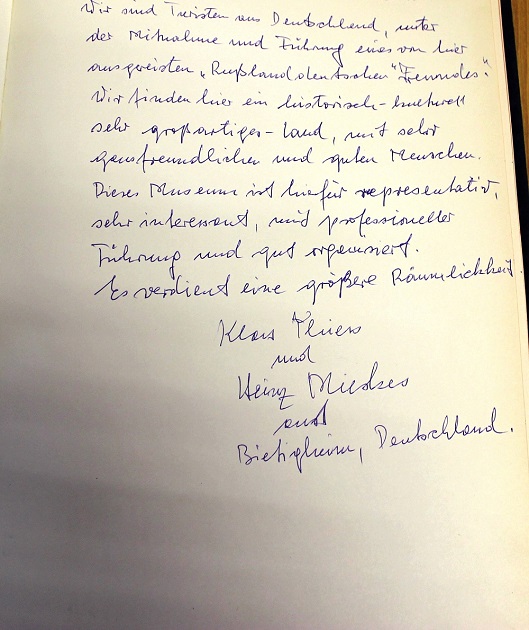 Wir sind Touristen aus Deutschland, unter
der Mitnahme und Führung eines von hier
ausgereisten „Rußlanddeutschen "Freundes".
Wir finden hier ein historisch-kulturell
sehr großartiges-Land, mit sehr
gastfreundlichen und guten Menschen.
Dieses Museum ist hiefür representativ,
sehr interessant, mit professioneller
Führung und gut organisiert.
Es verdient eine größere Räumlichkeit.
Klaus
und
Heinz
aus
Bietigheim, Deutschland.